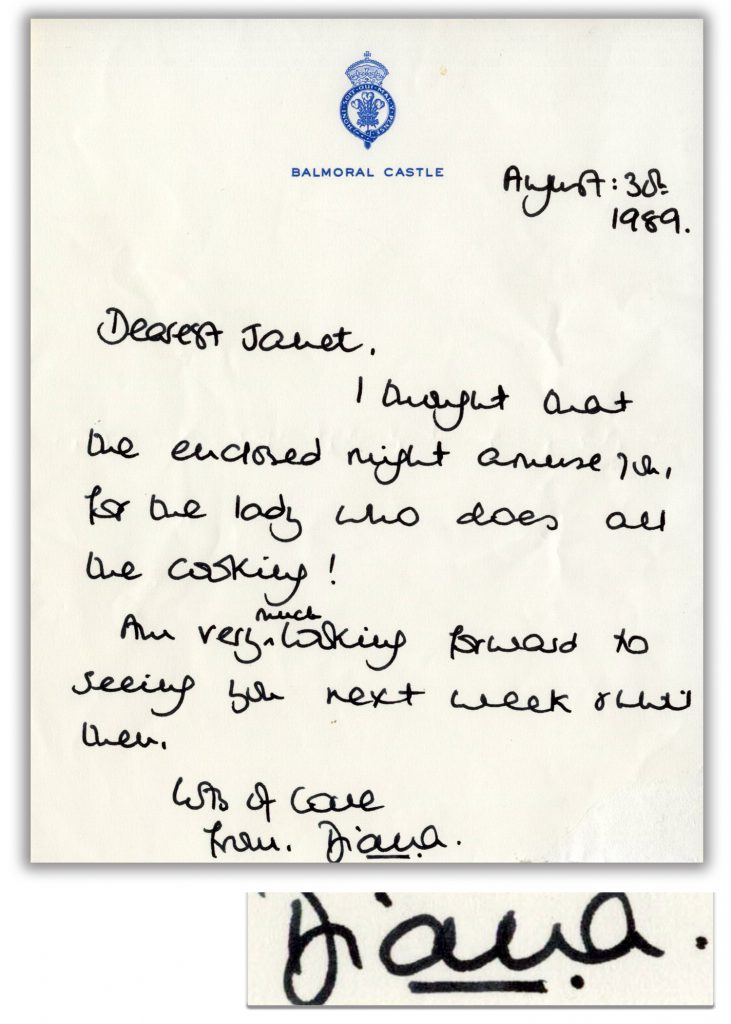 HONI·SOIT·QUI·MAL·Y·PENSE
BALMORAL CASTLE
August: 30th
1989.
Dearest Janet,
I thought that
the enclosed might amuse you,
for the lady who does all
the cooking!
Am very much looking forward to
seeing you next week & until
then.
Lots of love
from. Diana.
Diana.